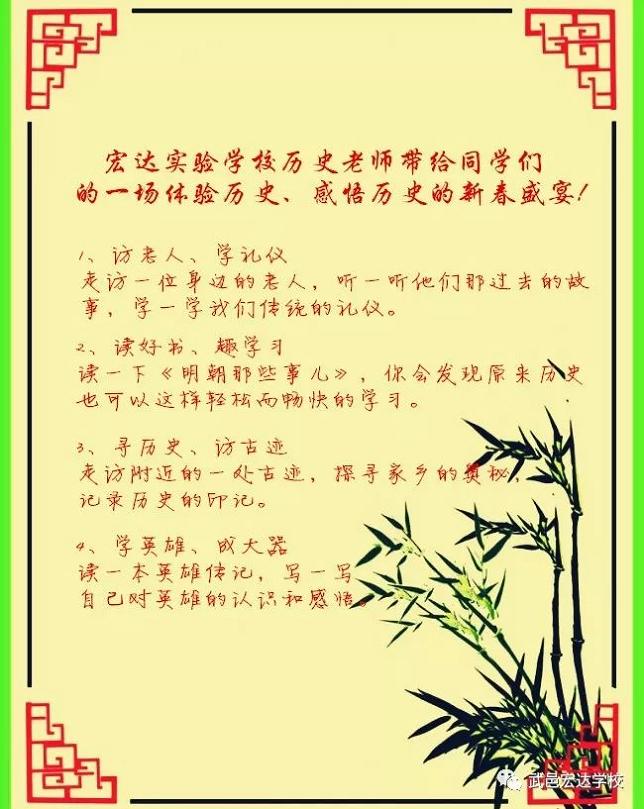 宏达实验学校历史老师带给同学们
的一场体验历史、感悟历史的新春盛宴!
1、访老人、学礼仪
走访一位身边的老人，听一听他们那过去的故
事，学一学我们传统的礼仪。
2、读好书、趣学习
读一下《明朝那些事儿》，你会发现原来历史
也可以这样轻松而畅快的学习。
3、寻历史、访古迹
走访附近的一处古迹，探寻家乡的奥秘，
记录历史的印记。
4、学英雄、成大器
读一本英雄传记，写一写
自己对英雄的认识和感悟。
武邑宏达学校